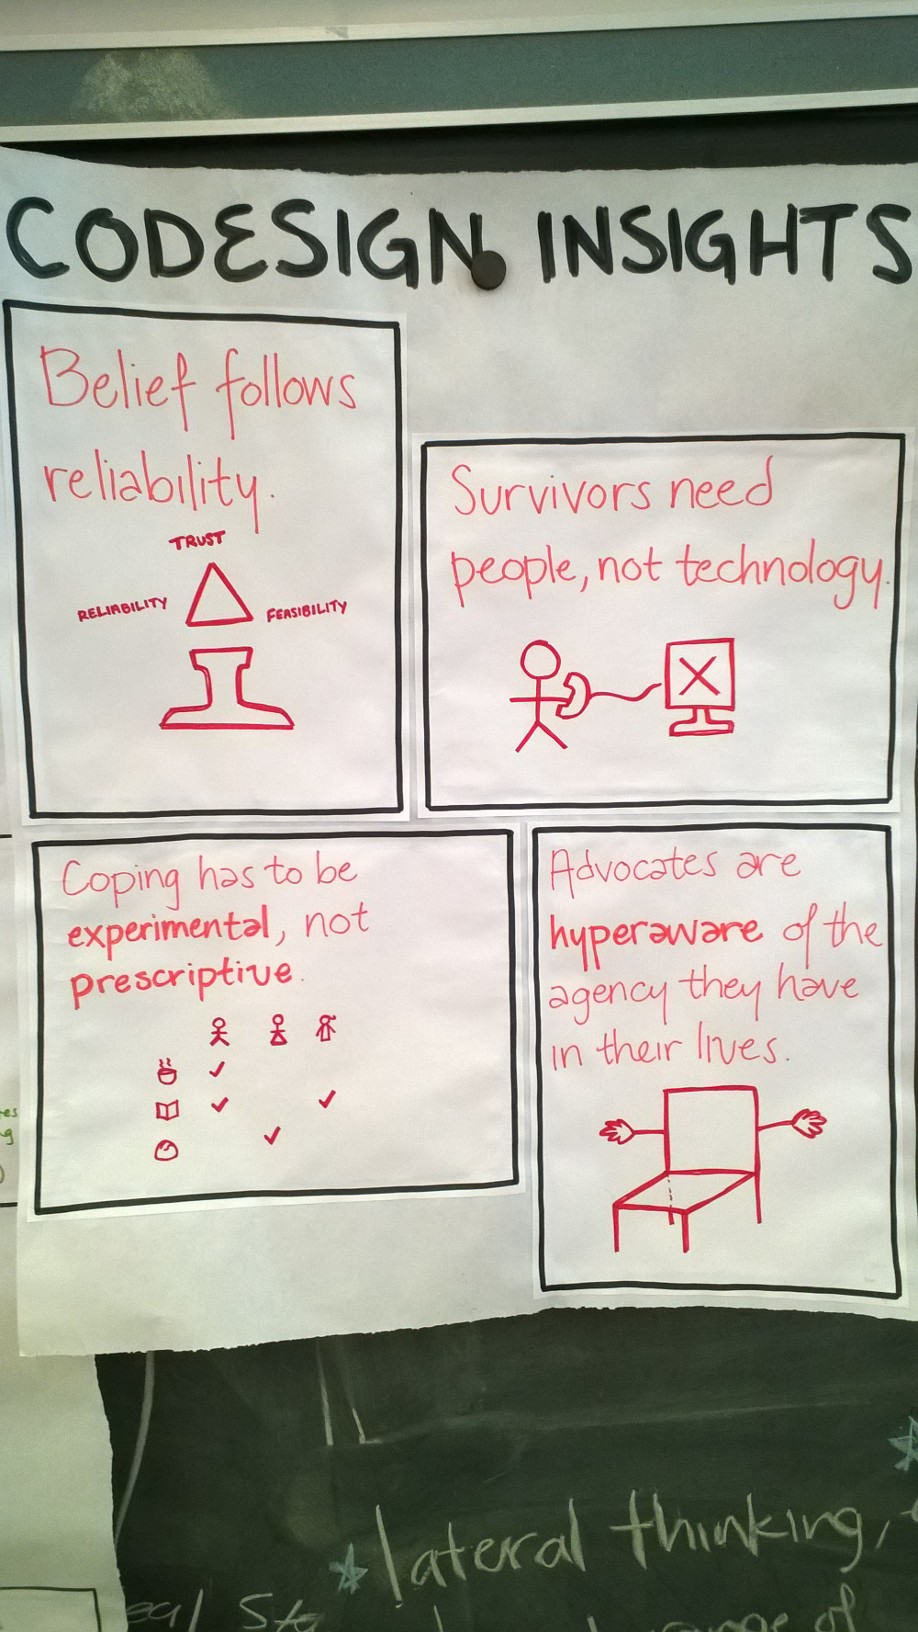 CODESIGN INSIGHTS
Belief follows
reliability.
TRUST
RELIABILITY
FEASIBILITY
Survivors need
people, not technology.
Coping has to be
experimental, not
prescriptive.
Advocates are
hyperaware of the
agency they have
in their lives.
lateral thinking,
of